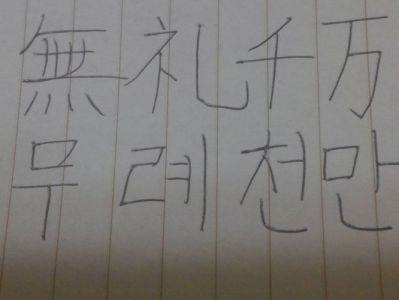 無礼千万
무례천만